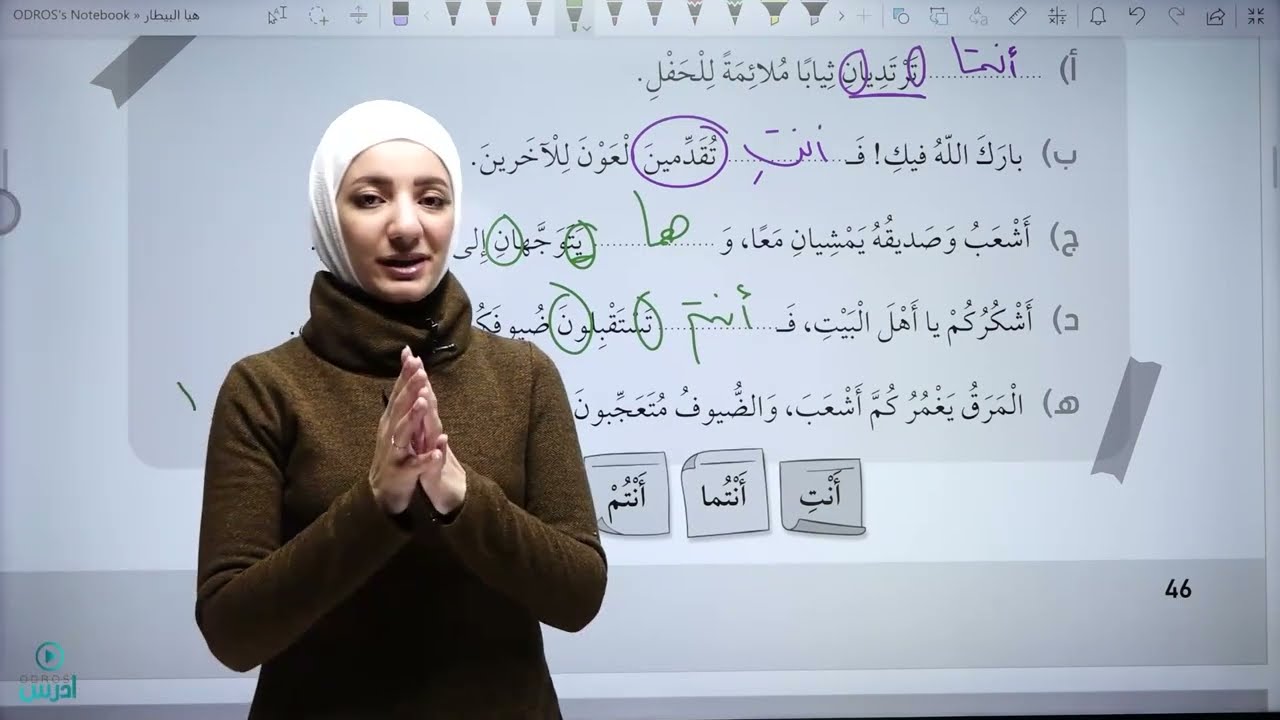 ODROS's Notebook » هبا البيطار
أ) أنتما تَرْتَدِيانِ ثِيابًا مُلائِمَةً لِلْحَفْلِ.
ب) بارَكَ اللّهُ فيكِ! فَـ أنتِ تُقَدِّمينَ الْعَوْنَ لِلْآخَرينَ.
ج) أَشْعَبُ وَصَديقُهُ يَمْشِيانِ مَعًا، وَ هما يَتَوَجَّهانِ إِلى
د) أَشْكُرُكُمْ يا أَهْلَ الْبَيْتِ، فَـ أنتم تَسْتَقْبِلونَ
هـ) الْمَرَقُ يَغْمُرُ كُمَّ أَشْعَبَ، وَالضُّيوفُ مُتَعَجِّبونَ
أَنْتِ أَنْتُما أَنْتُمْ
46
ODROS
ادرس